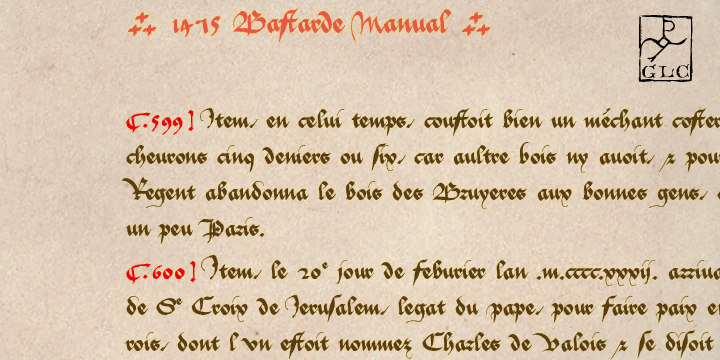 1475 Bastarde Manual
GLC
C.599] Item, en celui temps, coustoit bien un méchant coster
cheurons cinq deniers ou six, car aultre bois ny auoit, & pou
Regent abandonna le bois des Bruyeres aux bonnes gens,
un peu Paris.
C.600] Item, le 20e jour de feburier lan .m.cccc.xxxij. arriua
de Se Croix de Jerusalem, legat du pape, pour faire paix e
rois, dont l vn estoit nommez Charles de Valois & se disoit